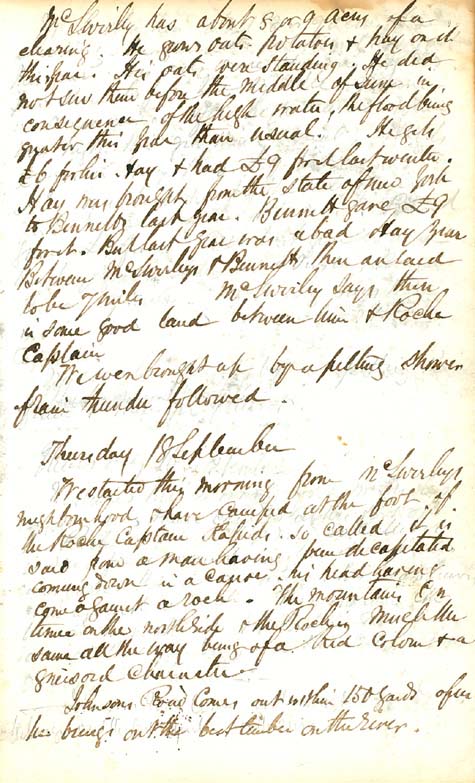 McSwirley has about 8 or 9 Acres of a
clearing. He grows oats Potatoes & hay on it
this year. His oats were standing. He did
not sow them before the middle of June in
consequence of the high water, the flood being
greater this year than usual. He gets
£6 for his Hay & had £9 for it last winter.
Hay was brought from the State of New York
to Bennetts last year. Bennett gave £9
for it. But last year was a bad Hay year
Between McSwirleys & Bennetts there are said
to be 7 miles McSwirley says there
is some good land between him & Roche
Captain
We were brought up by a pelting shower
of rain thunder followed.
Thursday 18 September
We started this morning from McSwirleys
neighbourhood & have camped at the foot of
the Roche Captain Rapids. so called it is
said from a man having been decapitated
coming down in a canoe. his head having
come against a rock. The mountains Con
tinue on the north side & the Rock is much the
same all the way being of a Red Colour & a
gneisord character
Johnsons Road Comes out within 150 yards of us
he brings out the best timber on the river.